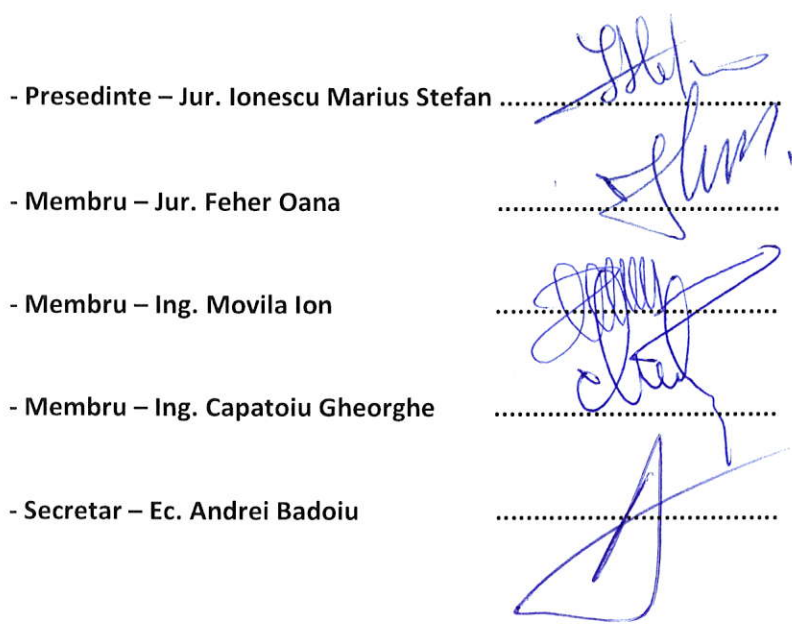 - Presedinte – Jur. Ionescu Marius Stefan ........................................
- Membru – Jur. Feher Oana ........................................
- Membru – Ing. Movila Ion ........................................
- Membru – Ing. Capatoiu Gheorghe ........................................
- Secretar – Ec. Andrei Badoiu ........................................